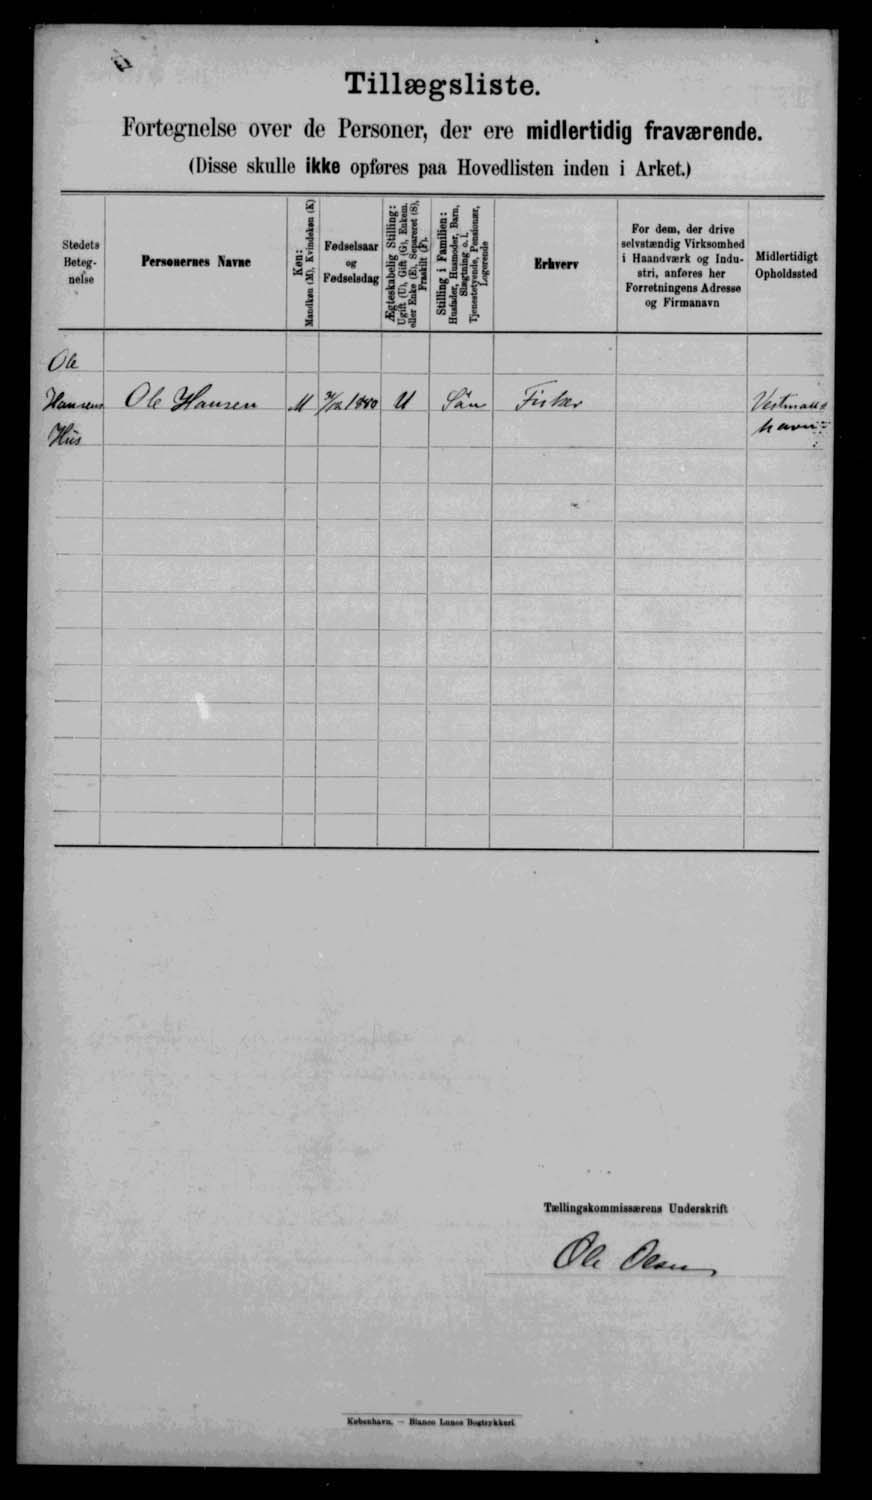 Tillægsliste.
Fortegnelse over de Personer, der ere midlertidig fraværende.
(Disse skulle ikke opføres paa Hovedlisten inden i Arket.)
Stedets
Beteg-
nelse
Personernes Navne
Køn:
Mandkøn (M), Kvindekøn (K)
Fødselsaar
og
Fødselsdag
Ægteskabelig Stilling:
Ugift (U), Gift (G), Enkem.
eller Enke (E), Separeret (S),
Fraskilt (F).
Stilling i Familien:
Husfader, Husmoder, Barn,
Slægtning o. l.
Tjenestetyende, Pensionær,
Logerende
Erhverv
For dem, der drive
selvstændig Virksomhed
i Haandværk og Indu-
stri, anføres her
Forretningens Adresse
og Firmanavn
Midlertidigt
Opholdssted
Ole
Hansens Ole Hansen M 1880 U Sön Fisker Vestman
Hus havn
Tællingskommissærens Underskrift
Ole Olsen
København. — Bianco Lunos Bogtrykkeri.